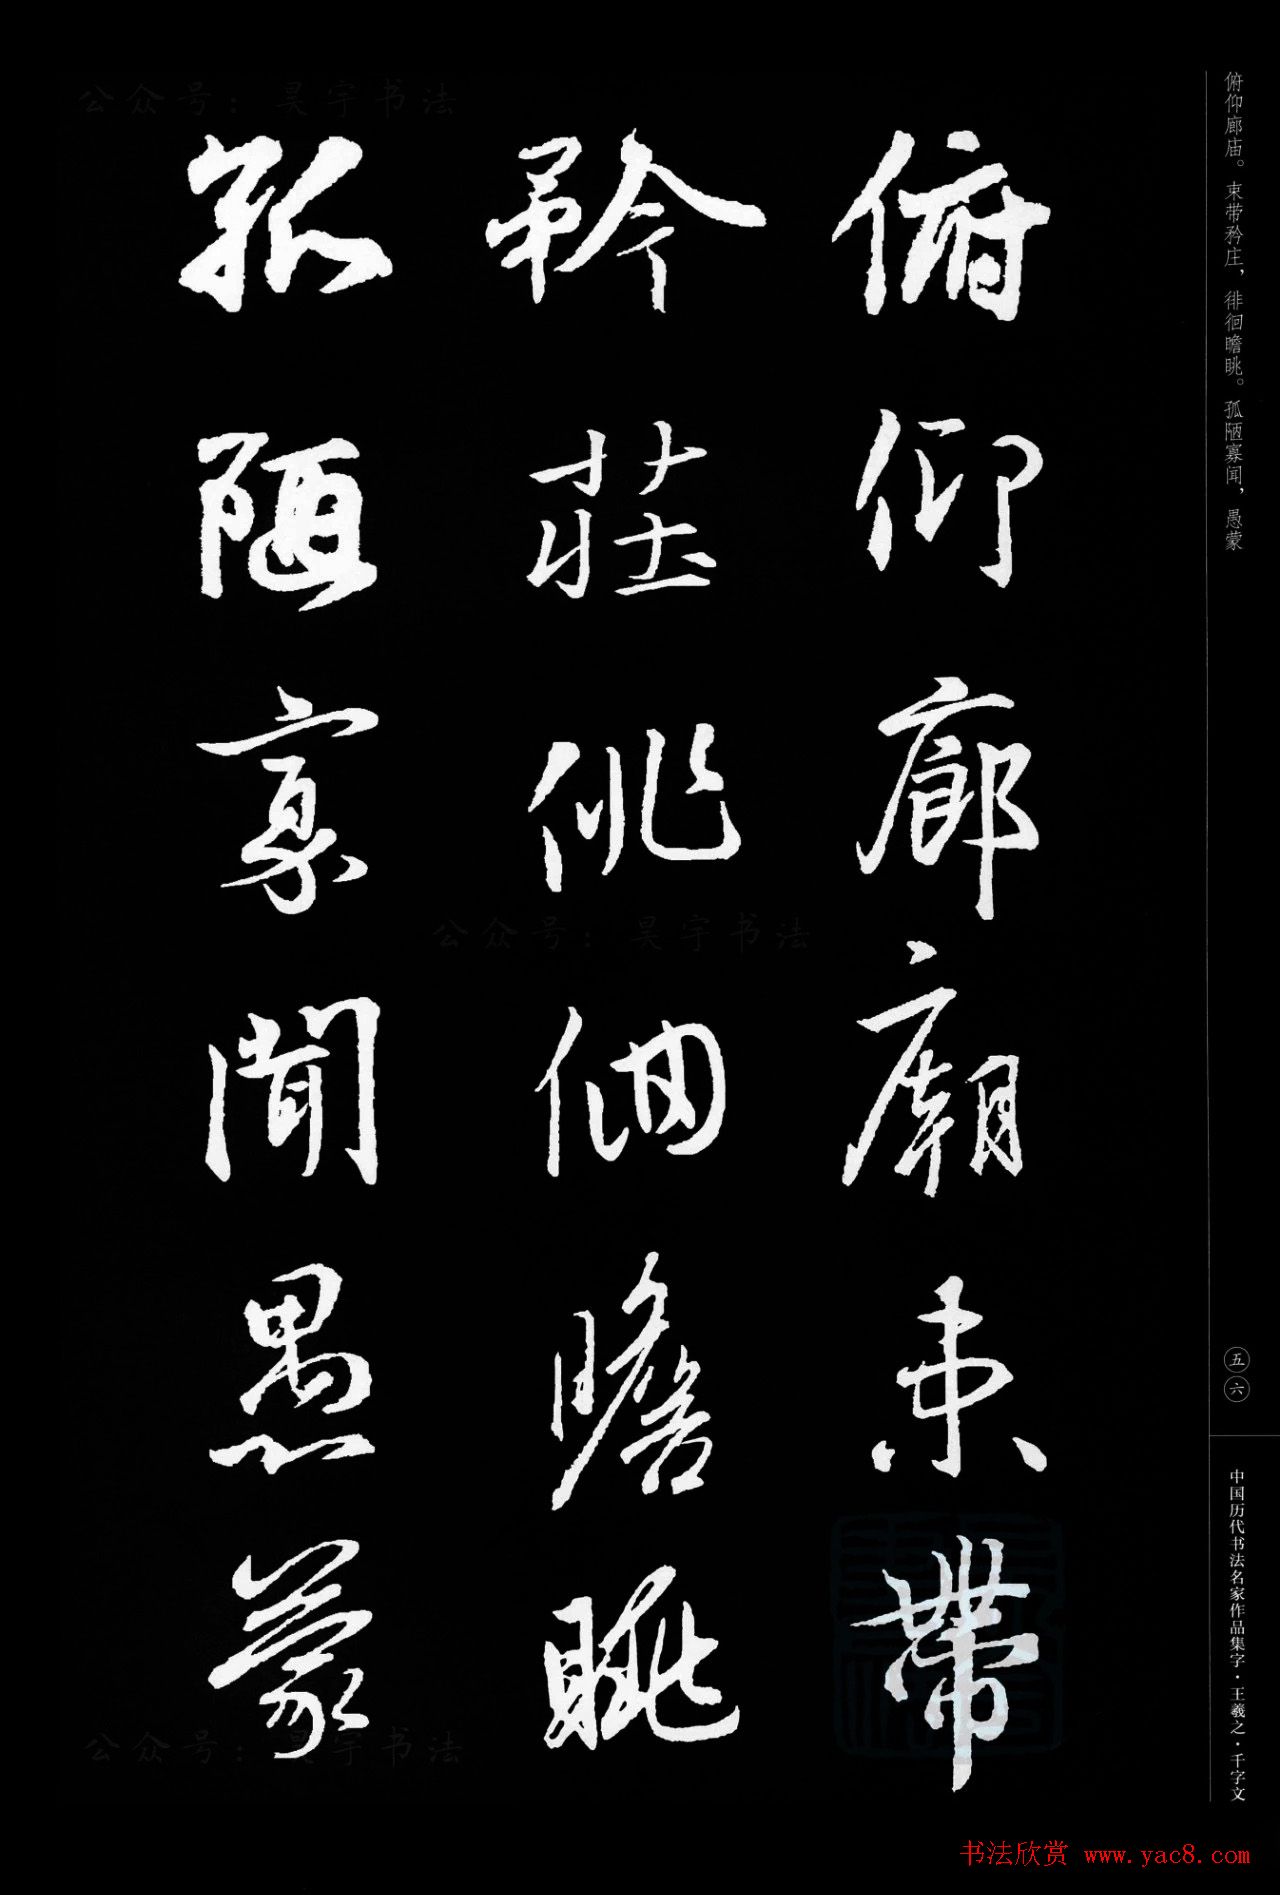 俯仰廊廟束帶
矜莊俳佪瞻眺
孤陋寡聞愚蒙
俯仰廊庙。束带矜庄，徘徊瞻眺。孤陋寡闻，愚蒙
五六
中国历代书法名家作品集字·王羲之·千字文
公众号：昊宇书法
公众号：昊宇书法
公众号：昊宇书法
书法欣赏 www.yac8.com